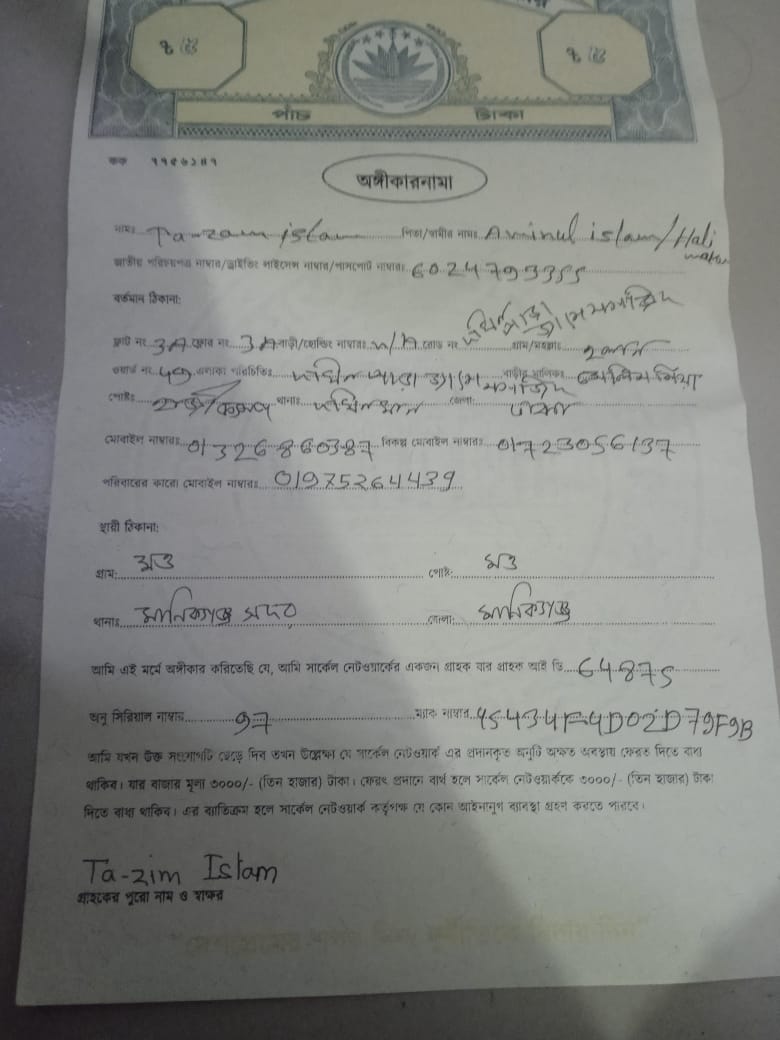 ৳ ৫ ৳ ৫
পাঁচ টাকা
কক ৭৭৫৬১৪৭
অঙ্গীকারনামা
নাম: Ta-zam islam পিতা/স্বামীর নামঃ Aminul islam/Hali
জাতীয় পরিচয়পত্র নাম্বার/ড্রাইভিং লাইসেন্স নাম্বার/পাসপোর্ট নাম্বারঃ 6024793355
বর্তমান ঠিকানা:
ফ্লাট নং 3A ফ্লোর নং 3A বাড়ী/হোল্ডিং নাম্বারঃ N/A রোড নং গ্রাম/মহল্লাঃ
ওয়ার্ড নং 49 এলাকা পরিচিতিঃ বাড়ীর মালিকঃ সেলিম মিয়া
পোষ্টঃ থানাঃ জেলা: ঢাকা
মোবাইল নাম্বারঃ 01326860387 বিকল্প মোবাইল নাম্বারঃ 01723056137
পরিবারের কারো মোবাইল নাম্বারঃ 01975264439
স্থায়ী ঠিকানা:
গ্রাম: মত্ত পোষ্ট: মত্ত
থানাঃ মানিকগঞ্জ সদর জেলা: মানিকগঞ্জ
আমি এই মর্মে অঙ্গীকার করিতেছি যে, আমি সার্কেল নেটওয়ার্কের একজন গ্রাহক যার গ্রাহক আই ডি 64875
অনু সিরিয়াল নাম্বার 97 ম্যাক নাম্বার 45434F4D02D79F9B
আমি যখন উক্ত সংযোগটি ছেড়ে দিব তখন উল্লেক্ষ্য যে সার্কেল নেটওয়ার্ক এর প্রদানকৃত অনুটি অক্ষত অবস্থায় ফেরত দিতে বাধ্য
থাকিব। যার বাজার মূল্য ৩০০০/- (তিন হাজার) টাকা। ফেরৎ প্রদানে ব্যর্থ হলে সার্কেল নেটওয়ার্ককে ৩০০০/- (তিন হাজার) টাকা
দিতে বাধ্য থাকিব। এর ব্যতিক্রম হলে সার্কেল নেটওয়ার্ক কর্তৃপক্ষ যে কোন আইনানুগ ব্যবস্থা গ্রহন করতে পারবে।
Ta-zim Islam
গ্রাহকের পুরো নাম ও স্বাক্ষর